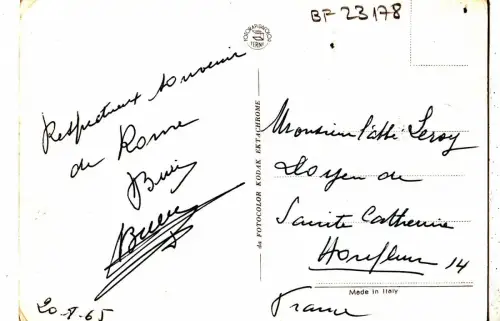 BF 23178
TERNI
Respectueux souvenir
de Rome
20-8-65
da FOTOCOLOR KODAK EKTACHROME
Monsieur l'abbé Leroy
Doyen de
Sainte Catherine
Honfleur 14
France
Made in Italy